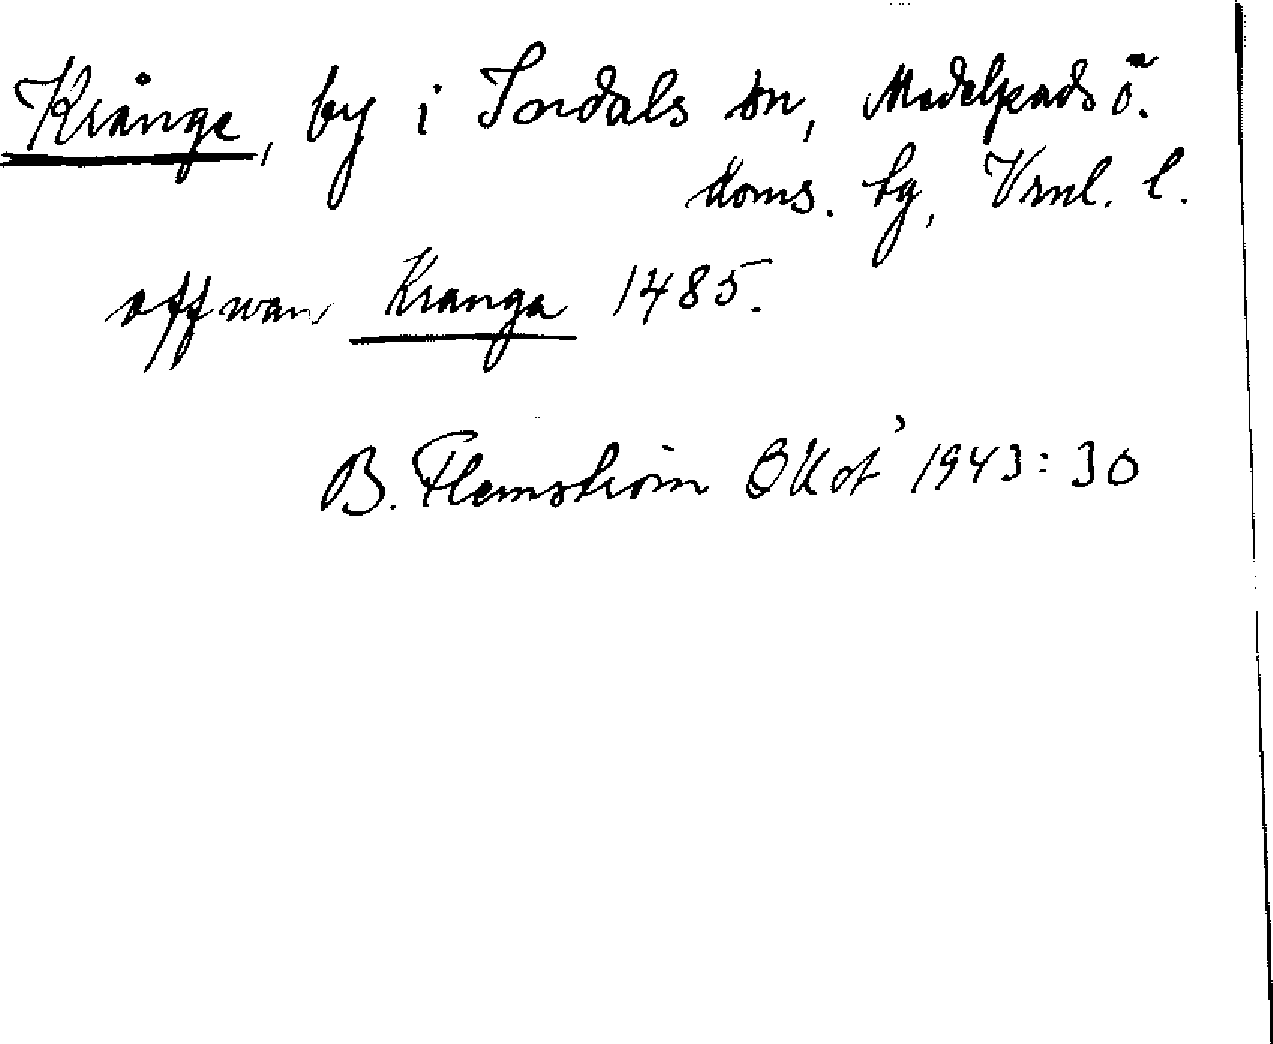 Krånge, by i Indals sn, Medelpads ö.
doms. tg, Vrnl. l.
offwan Kranga 1485.
B. Flemström 1943:30